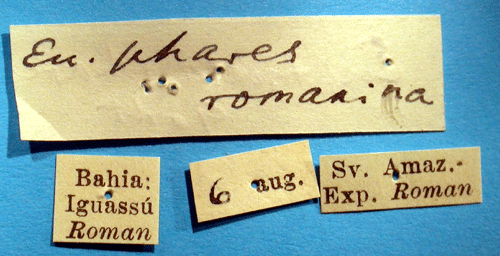 Eu. phares
romanina
Bahia:
Iguassú
Roman
6 aug.
Sv. Amaz.-
Exp. Roman